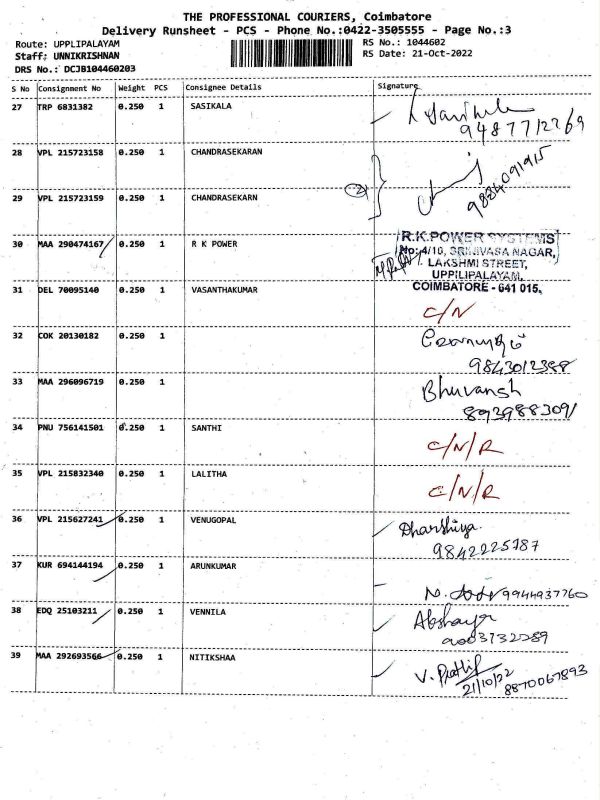 THE PROFESSIONAL COURIERS, Coimbatore
Delivery Runsheet - PCS - Phone No.:0422-3505555 - Page No.:3
Route: UPPLIPALAYAM RS No.: 1044602
Staff: UNNIKRISHNAN RS Date: 21-Oct-2022
DRS No.: DCJB104460203
S No Consignment No Weight PCS Consignee Details Signature
27 TRP 6831382 0.250 1 SASIKALA
9487712269
28 VPL 215723158 0.250 1 CHANDRASEKARAN
29 VPL 215723159 0.250 1 CHANDRASEKARN
9884091915
30 MAA 290474167 0.250 1 R K POWER
R.K.POWER SYSTEMS
No:4/10, SRINIVASA NAGAR,
LAKSHMI STREET,
UPPILIPALAYAM,
COIMBATORE - 641 015.
31 DEL 70095140 0.250 1 VASANTHAKUMAR
C/N
32 COK 20130182 0.250 1
9843012388
33 MAA 296096719 0.250 1
Bhuvansh
8939883091
34 PNU 756141501 0.250 1 SANTHI
C/N/R
35 VPL 215832340 0.250 1 LALITHA
C/N/R
36 VPL 215627241 0.250 1 VENUGOPAL
Dharshiya.
9842225787
37 KUR 694144194 0.250 1 ARUNKUMAR
9944937760
38 EDQ 25103211 0.250 1 VENNILA
Akshaya
9003732289
39 MAA 292693566 0.250 1 NITIKSHAA
21/10/22
8870067893